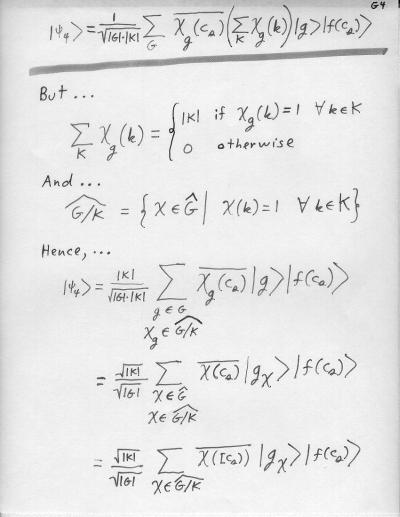 G4
|ψ₄⟩ = 1/√|G|·|K| ∑_G \overline{χ_g(c_a)} (∑_K χ_g(k)) |g⟩|f(c_a)⟩
But ...
∑_K χ_g(k) = { |K| if χ_g(k)=1 ∀ k∈K
0 otherwise
And ...
\widehat{G/K} = {χ ∈ Ĝ | χ(k)=1 ∀ k∈K}
Hence, ...
|ψ₄⟩ = |K|/√|G|·|K| ∑_{g∈G, χ_g∈\widehat{G/K}} \overline{χ_g(c_a)} |g⟩|f(c_a)⟩
= √|K|/√|G| ∑_{χ∈Ĝ, χ∈\widehat{G/K}} \overline{χ(c_a)} |g_χ⟩|f(c_a)⟩
= √|K|/√|G| ∑_{χ∈\widehat{G/K}} \overline{χ([c_a])} |g_χ⟩|f(c_a)⟩